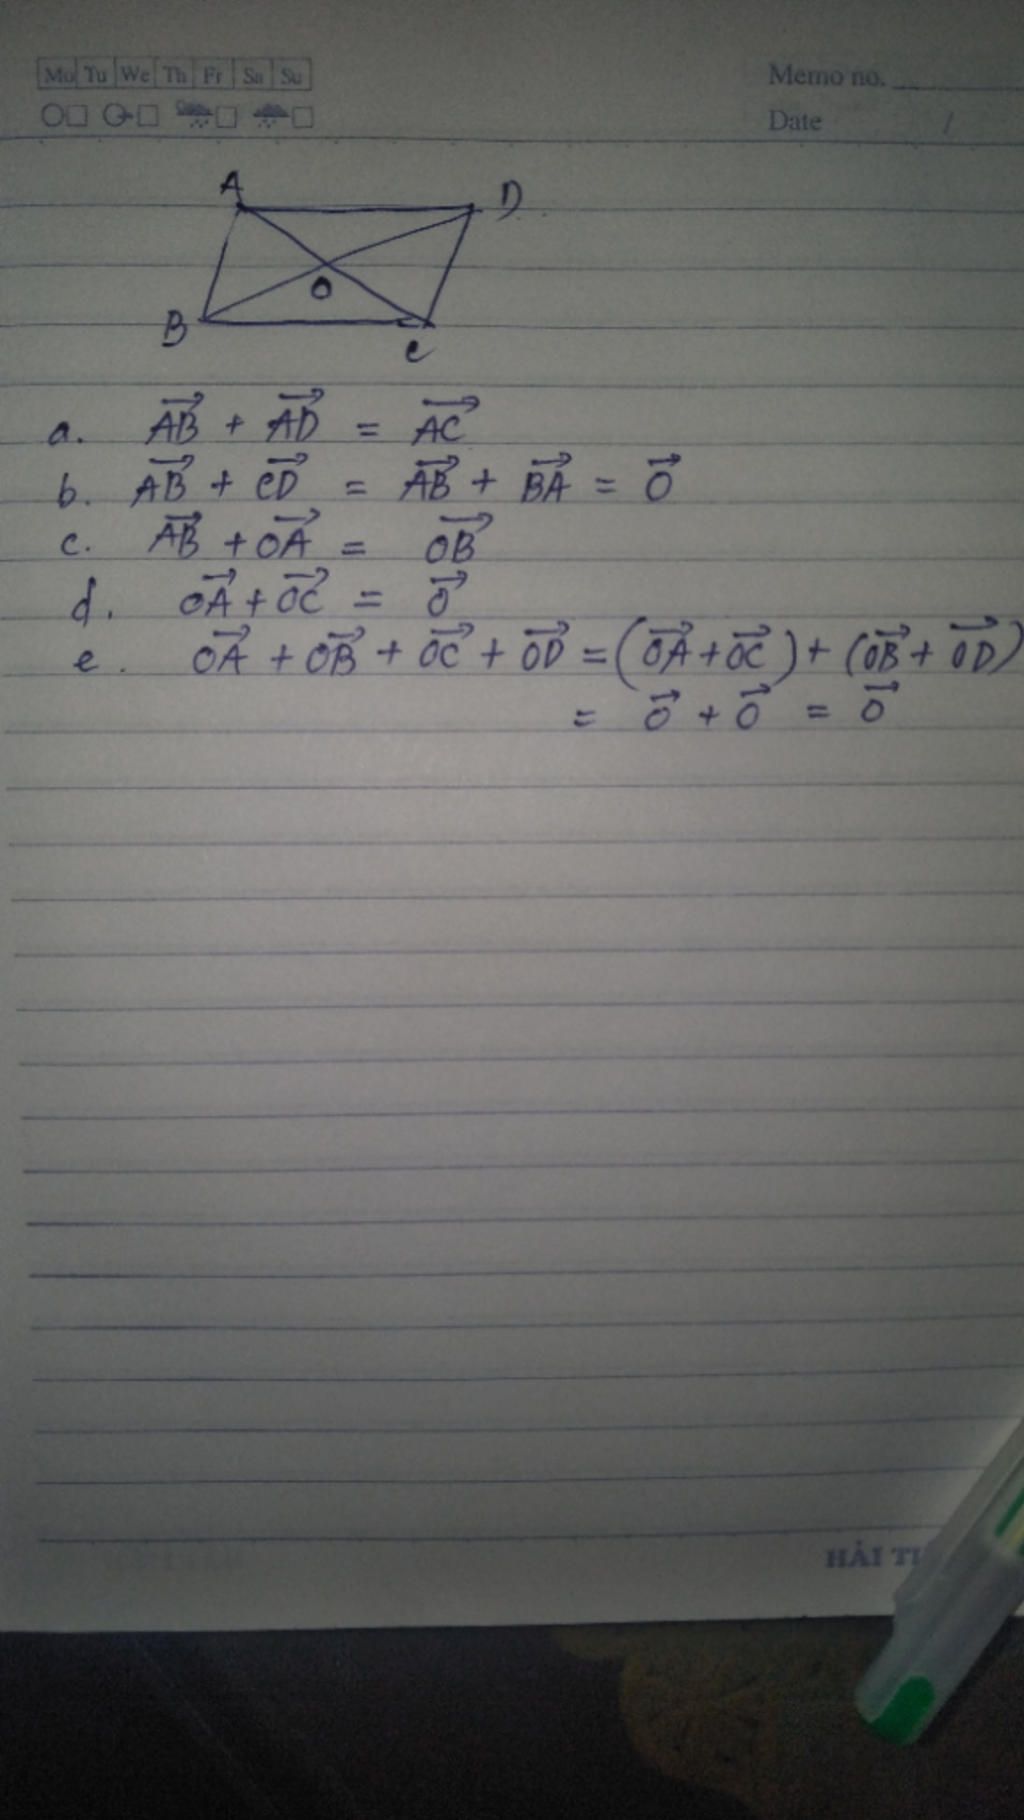 Mo Tu We Th Fr Sa Su
Memo no.
Date /
A D
O
B C
a. AB⃗ + AD⃗ = AC⃗
b. AB⃗ + CD⃗ = AB⃗ + BA⃗ = 0⃗
c. AB⃗ + OA⃗ = OB⃗
d. OA⃗ + OC⃗ = 0⃗
e. OA⃗ + OB⃗ + OC⃗ + OD⃗ = (OA⃗ + OC⃗) + (OB⃗ + OD⃗)
= 0⃗ + 0⃗ = 0⃗
HẢI